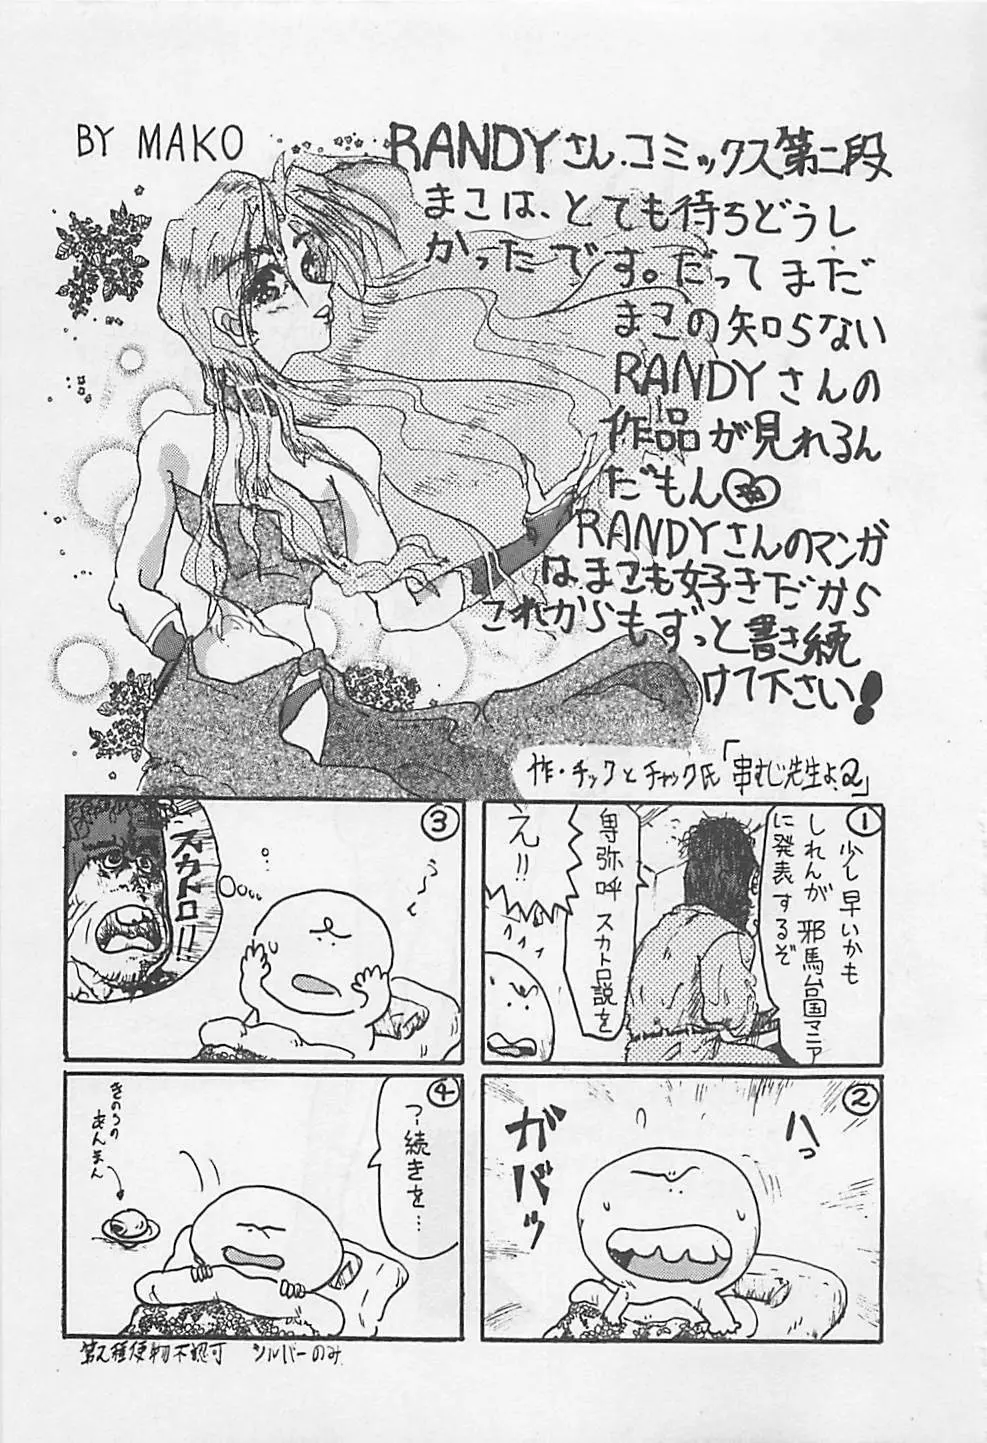 BY MAKO
RANDYさん.コミックス第二段
まこは、とても待ちどうし
かったです。だってまだ
まこの知らない
RANDYさんの
作品が見れるん
だもん
RANDYさんのマンガ
はまこも好きだから
これからもずっと書き続
けて下さい!
作・チックとチャック氏「串むじ先生よ2」
①
少し早いかも
しれんが邪馬台国マニア
に発表するぞ
卑弥呼スカトロ説を
え!!
②
ハっ
ガバッ
③
う〜
スカトロ!!
④
つ、続きを…
きのうの
あんまん
シルバーのみ